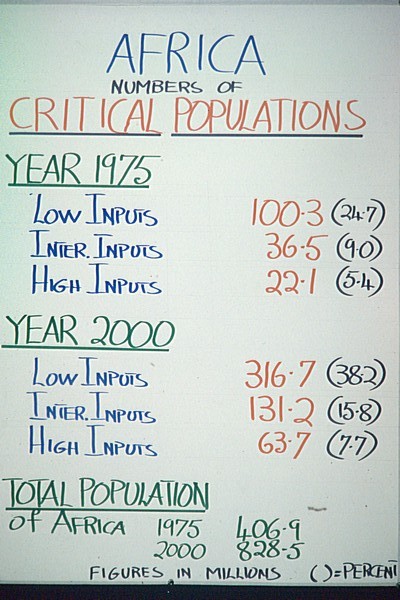 AFRICA
NUMBERS OF
CRITICAL POPULATIONS
YEAR 1975
LOW INPUTS 100·3 (24·7)
INTER. INPUTS 36·5 (9·0)
HIGH INPUTS 22·1 (5·4)
YEAR 2000
LOW INPUTS 316·7 (38·2)
INTER. INPUTS 131·2 (15·8)
HIGH INPUTS 63·7 (7·7)
TOTAL POPULATION
of AFRICA 1975 406·9
2000 828·5
FIGURES IN MILLIONS ( )=PERCENT